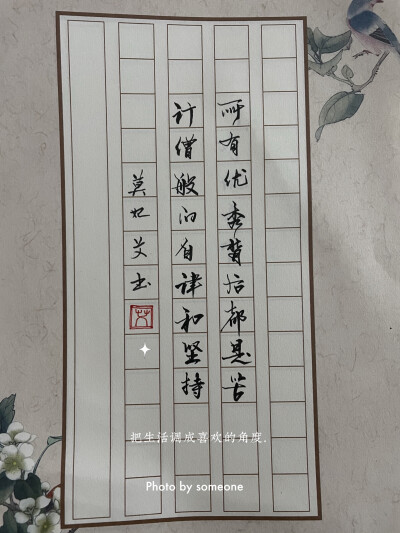 所有优秀背后都是苦
行僧般的自律和坚持
莫 艾书
把生活调成喜欢的角度.
Photo by someone